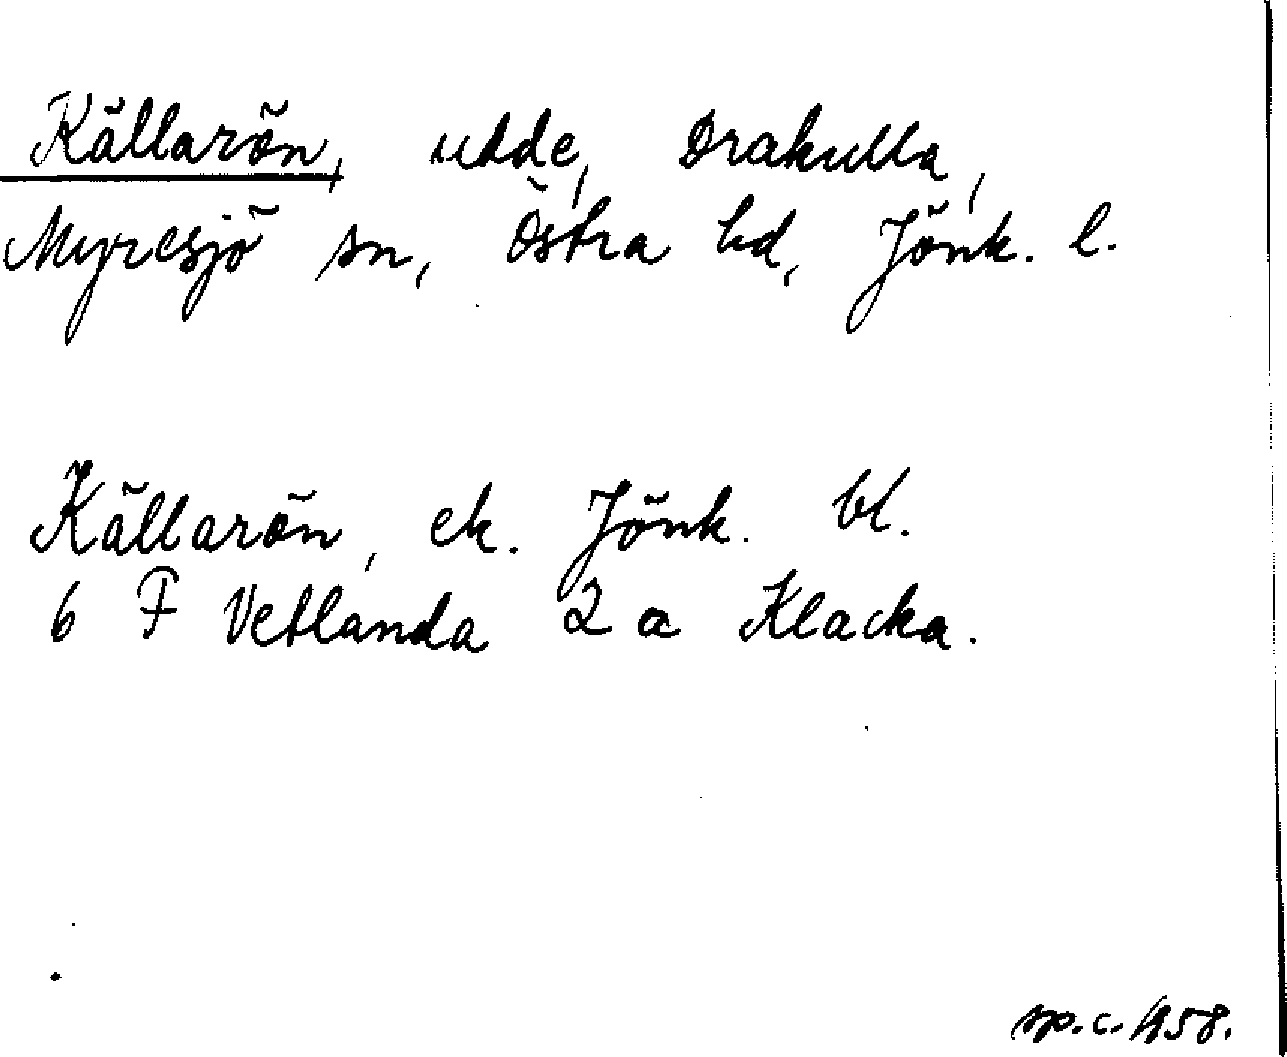 Källarön, udde, Drakulla,
Myresjö sn, Östra hd, Jönk. l.
Källarön, ek. Jönk. bl.
6 F Vetlanda 2 a Klacka.
sp.c. 1958.